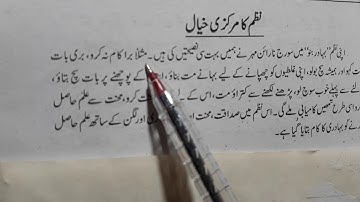 نظم کا مرکزی خیال
اپنی نظم ”بہادر بنو“ میں سورج نارائن مہر نے ہمیں بہت سی نصیحتیں کی ہیں۔ مثلاً برا کام نہ کرو، بری بات
کہو اور ہمیشہ سچ بولو، اپنی غلطیوں کو چھپانے کے لیے بہانے مت بناؤ، کے پوچھنے پر بات سچ بتاؤ،
سے پہلے خوب سوچ لو، پڑھنے لکھنے سے کتراؤ مت، اس کے کرو، محنت سے علم حاصل
تمھیں کامیابی ملے گی۔ اس نظم میں صداقت، محنت اور لگن کے ساتھ علم حاصل
کرنے کو بہادری کا کام بتایا گیا ہے۔